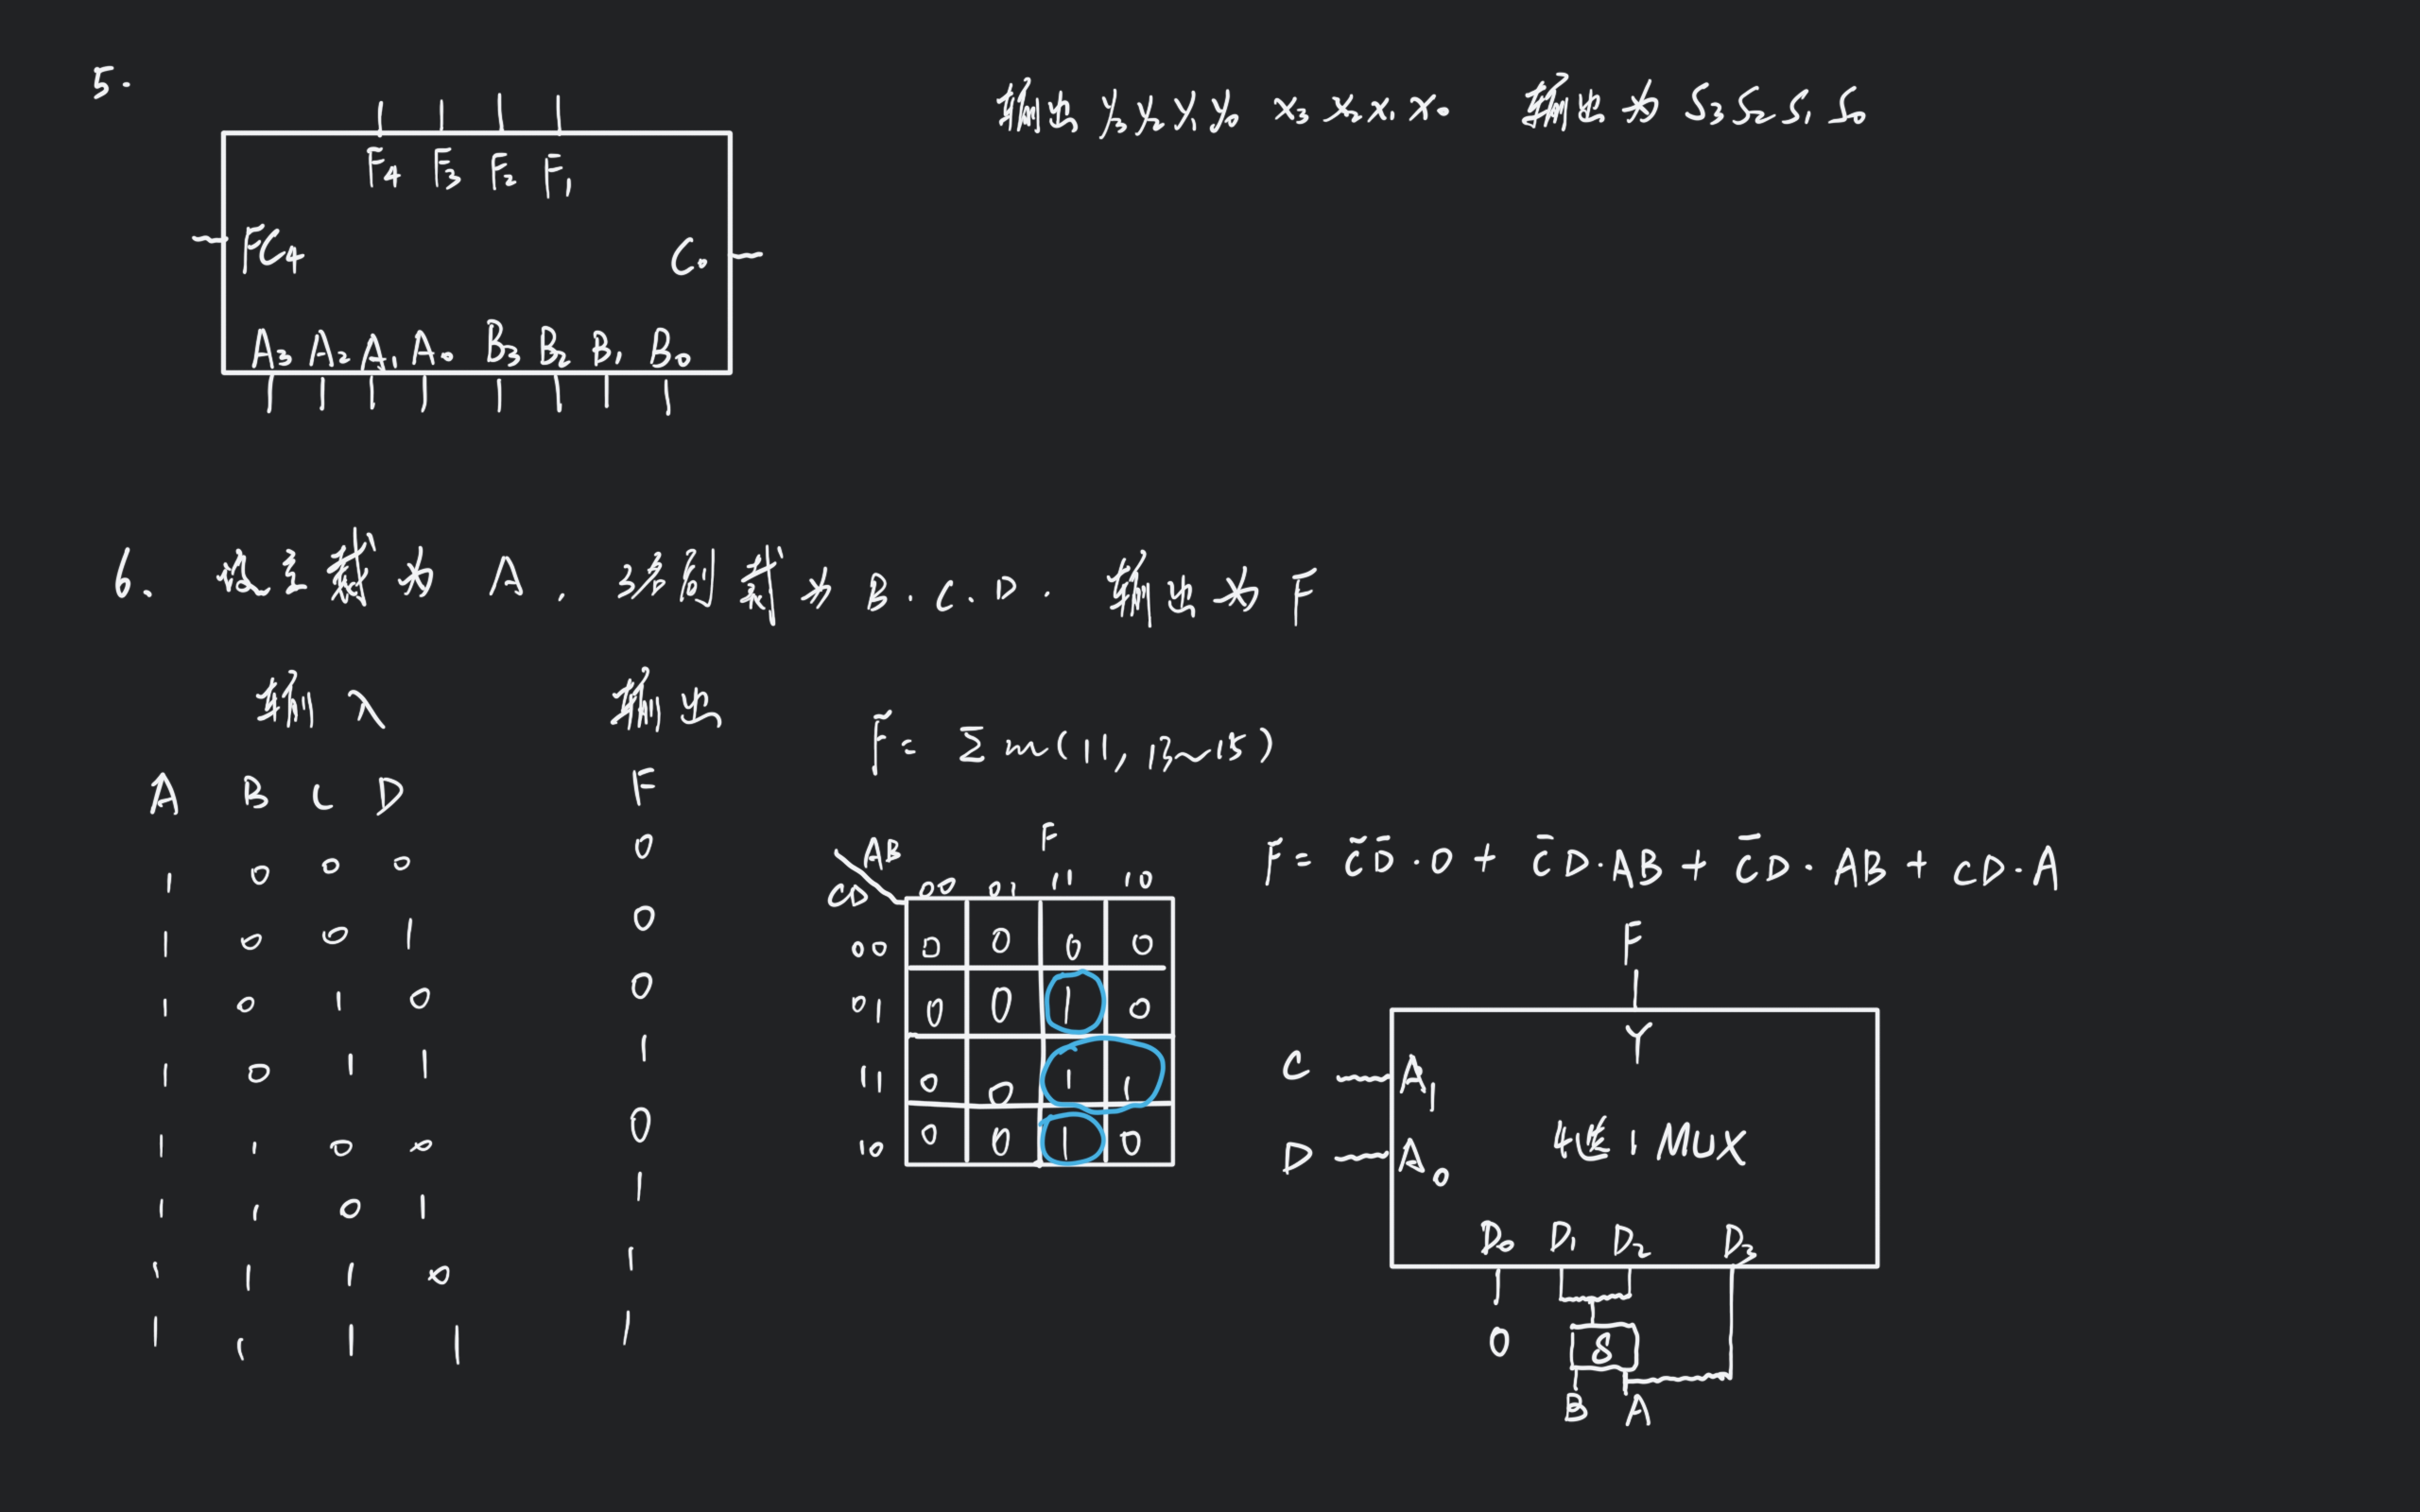 5.
输出 y₃ y₂ y₁ y₀ x₃ x₂ x₁ x₀ 输出为 S₃ S₂ S₁ S₀
F₄ F₃ F₂ F₁
FC₄ C₀
A₃ A₂ A₁ A₀ B₃ B₂ B₁ B₀
6、设主裁为 A, 3名副裁为 B. C. D. 输出为 F
输入 输出
A B C D F
1 0 0 0 0
1 0 0 1 0
1 0 1 0 0
1 0 1 1 1
1 1 0 0 0
1 1 0 1 1
1 1 1 0 1
1 1 1 1 1
F = Σm(11, 13~15)
F
AB
CD 00 01 11 10
00 0 0 0 0
01 0 0 1 0
11 0 0 1 1
10 0 0 1 0
F = C̄D̄·0 + C̄D·AB + C̄D·AB + CD·A
F
Y
C A₁
4选1 MUX
D A₀
D₀ D₁ D₂ D₃
0 &
B A